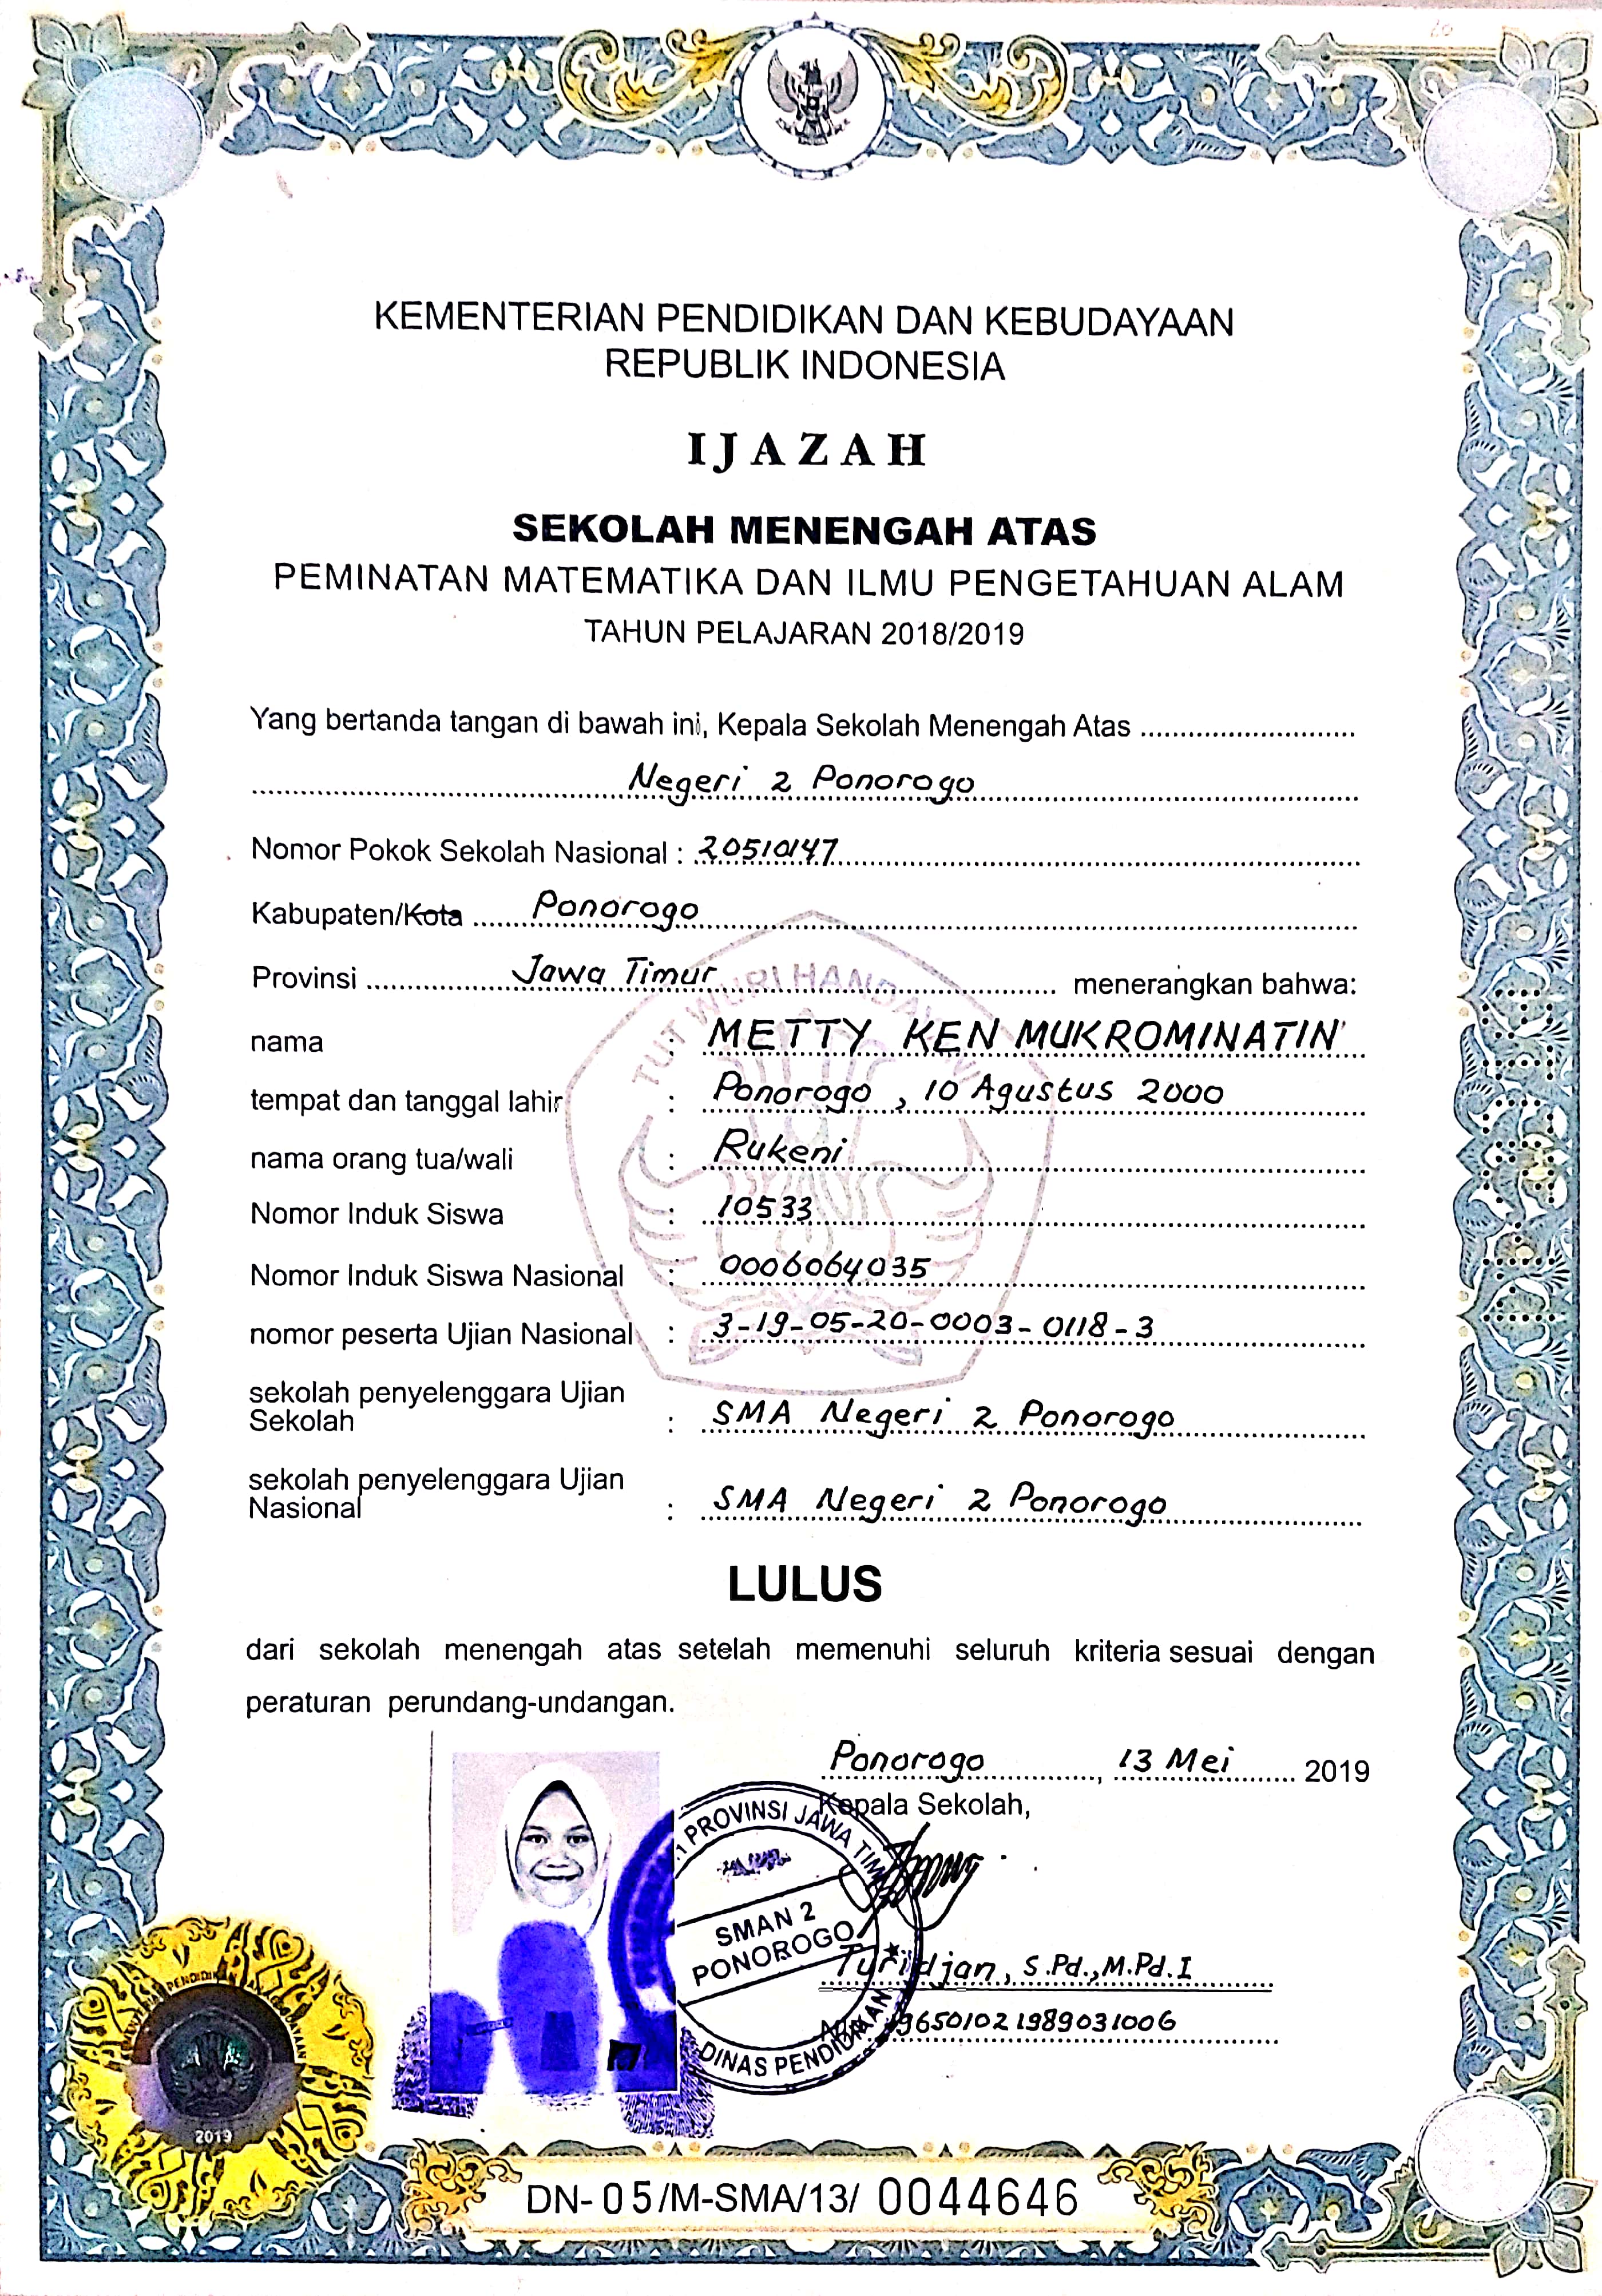 KEMENTERIAN PENDIDIKAN DAN KEBUDAYAAN
REPUBLIK INDONESIA
IJAZAH
SEKOLAH MENENGAH ATAS
PEMINATAN MATEMATIKA DAN ILMU PENGETAHUAN ALAM
TAHUN PELAJARAN 2018/2019
Yang bertanda tangan di bawah ini, Kepala Sekolah Menengah Atas
Negeri 2 Ponorogo
Nomor Pokok Sekolah Nasional : 20510147
Kabupaten/Kota Ponorogo
Provinsi Jawa Timur menerangkan bahwa:
nama : METTY KEN MUKROMINATIN
tempat dan tanggal lahir : Ponorogo, 10 Agustus 2000
nama orang tua/wali : Rukeni
Nomor Induk Siswa : 10533
Nomor Induk Siswa Nasional : 0006064035
nomor peserta Ujian Nasional : 3-19-05-20-0003-0118-3
sekolah penyelenggara Ujian
Sekolah : SMA Negeri 2 Ponorogo
sekolah penyelenggara Ujian
Nasional : SMA Negeri 2 Ponorogo
LULUS
dari sekolah menengah atas setelah memenuhi seluruh kriteria sesuai dengan
peraturan perundang-undangan.
Ponorogo, 13 Mei 2019
Kepala Sekolah,
PROVINSI JAWA TIM
SMAN 2
PONOROGO
DINAS PENDIDIKAN
Turidjan, S.Pd.,M.Pd.I
196501021989031006
TUT WURI HANDAYANI
PENDIDIKAN DAN KEBUDAYAAN
2019
DN-05/M-SMA/13/ 0044646